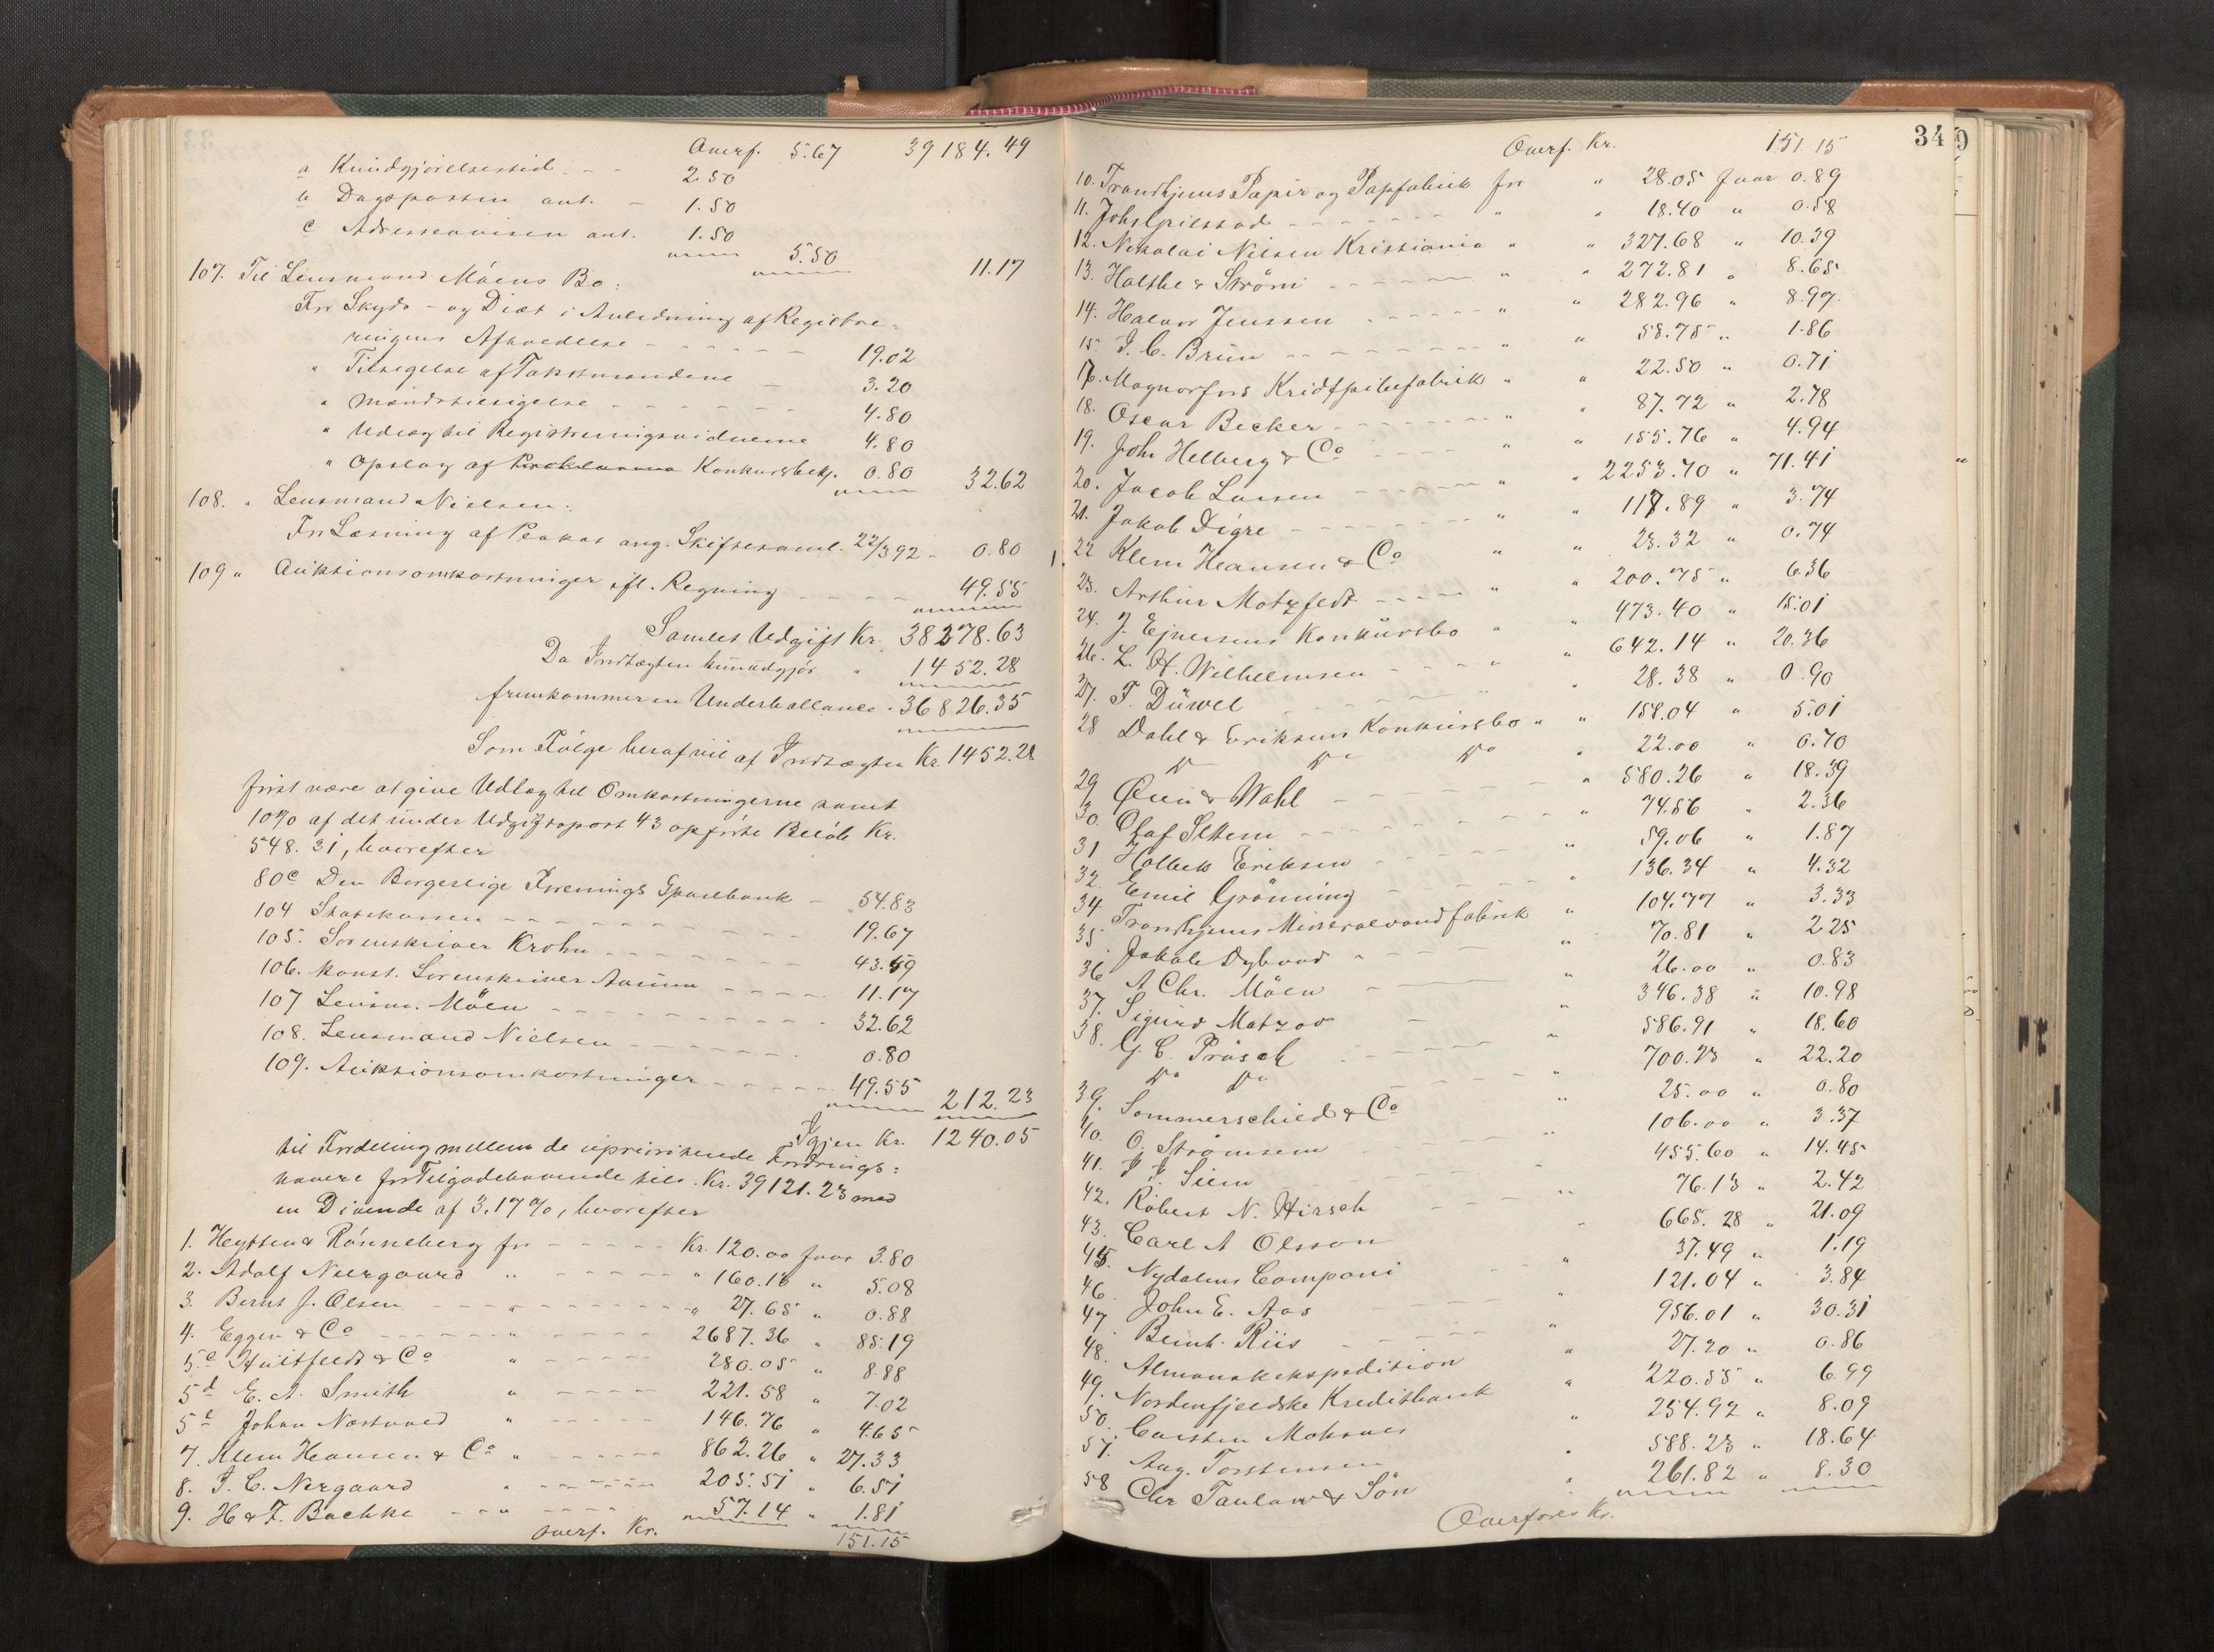 Overf. 5.67 39184.49
a Kundgjörelsestid. - - 2.50
b Dagsposten ant. - 1.50
c Adresseavisen ant. 1.50
5.50 11.17
107. Til Lensmand Möens Bo:
For Skyds- og Diæt i Anledning af Registre-
ringens Afholdelse - - - - - 19.02
" Tilsigelse af Takstmændene - 3.20
" Mandstilsigelse - - - - - - 4.80
" Udlæg til Registreringsvidnerne 4.80
" Opslag af Konkursbekj. 0.80 32.62
108. " Lensmand Nielsen:
For Læsning af Plakat ang. Skiftesaml. 22/3 92 - 0.80
109 " Auktionsomkostninger efl. Regning - - - - - 49.55
Samlet Udgift Kr. 38278.63
Da Indtægten kun udgjør " 1452.28
fremkommer en Underballance " 36826.35
Som Følge heraf vil af Indtægten Kr. 1452.28
först være at give Udlæg til Omkostningerne samt
10% af det under Udgiftspost 43 opførte Belöb Kr.
548.31, hvorefter
80c Den Borgerlige Forenings Sparebank - 54.83
104 Statskassen - - - - - - - - 19.67
105. Sorenskriver Krohn - - - - - - - 43.59
106. konst. Sorenskriver - - - - 11.17
107 Lensm. Möen - - - - - - - - - 32.62
108. Lensmand Nielsen - - - - - - 0.80
109. Auktionsomkostninger - - - - - 49.55 212.23
Igjen Kr. 1240.05
til Fordeling mellem de uprioriterede Fordrings-
havere for Tilgodehavende tils. Kr. 39121.23 med
en Divende af 3.17%, hvorefter
1. Heytten & Rönneberg for - - - - - Kr. 120.00 faar 3.80
2. Adolf Neergaard " - - - - - " 160.18 " 5.08
3. Bernt J. Olsen - - - " - - - - - " 27.65 " 0.88
4. Eggen & Co - - - - - " - - - - 2687.36 " 85.19
5c Huitfeldt & Co " - - - - - 280.05 " 8.88
5d E. A. Smith " - - - - 221.58 " 7.02
5e Johan Næstvold " - - - - - 146.76 " 4.65
7. Klem Hansen & Co " - - - - - 862.26 " 27.33
8. J. C. Nergaard " - - - - - 205.51 " 6.51
9. H & F. Bachke - - " - - - - 57.14 " 1.81
overf. Kr. 151.15
34
Overf. Kr. 151.15
10. Trondhjems Papir og Papfabrik for " 28.05 faar 0.89
11. Johs Grilstad - - - - - - - " " 18.40 " 0.58
12. Nikolai Nilsen Kristiania " " 327.68 " 10.39
13. Holthe & Ström - - - - - - " " 272.81 " 8.65
14. Halvor Jenssen - - - - - - " " 282.96 " 8.97
15. J. C. Brun - - - - - - - - " " 58.75 " 1.86
16. Magnorfors Kridtpibefabrik " " 22.50 " 0.71
18. Oscar Becker - - - - - - - " " 87.72 " 2.78
19. Joh Helberg & Co - - - - " " 155.76 " 4.94
20. Jacob Larsen - - - - - - " " 2253.70 " 71.41
21. Jakob Digre - - - - - - - " " 117.89 " 3.74
22 Klem Hansen & Co " " 23.32 " 0.74
23. Arthur Motzfedt - - - - - " " 200.75 " 6.36
24. J. Ejnersens Konkursbo " " 473.40 " 15.01
26. L. H. Wilhelmsen - - - - " " 642.14 " 20.36
27. F. Düwel - - - - - " " 28.38 " 0.90
28 Dahl & Eriksens Konkursbo " " 158.04 " 5.01
Do Do Do " 22.00 " 0.70
29 Öien & Wahl - - - - - - - " 580.26 " 18.39
30. Olaf Settem - - - - - - - - " 74.56 " 2.36
31 Holbek Eriksen - - - - - - " 59.06 " 1.87
32. Emil Grönning - - - - - " 136.34 " 4.32
34 Trondhjems Mineralvandfabrik " 104.77 " 3.33
35. Jakob Dybvad - - - - " 70.81 " 2.25
36 A Chr. Möen - - - " 26.00 " 0.83
37. Sigurd Matzov - " 346.38 " 10.98
38. G. C. Präsch - - - - " 586.91 " 18.60
Do Do - - - - " 700.23 " 22.20
39. Sommerschied & Co " 25.00 " 0.80
40. O. Strömsem - " 106.00 " 3.37
41. Siem - - - - - - " 455.60 " 14.45
42. Robert N. Hirsch - - - " 76.13 " 2.42
43. Carl A Olsson " 665.28 " 21.09
45. Nydalens Compani - - " 37.49 " 1.19
46 John E. Aas - - - - " 121.04 " 3.84
47 Bernh. Riis - - - - - " 956.01 " 30.31
48. Almanakekspedition " 27.20 " 0.86
49. Nordenfjeldske Kreditbank " 220.55 " 6.99
50. Carsten " 254.92 " 8.09
57. Aug. Torstensen " 588.23 " 18.64
58 Chr Taulow & Sön " 261.82 " 8.30
Overføres Kr.